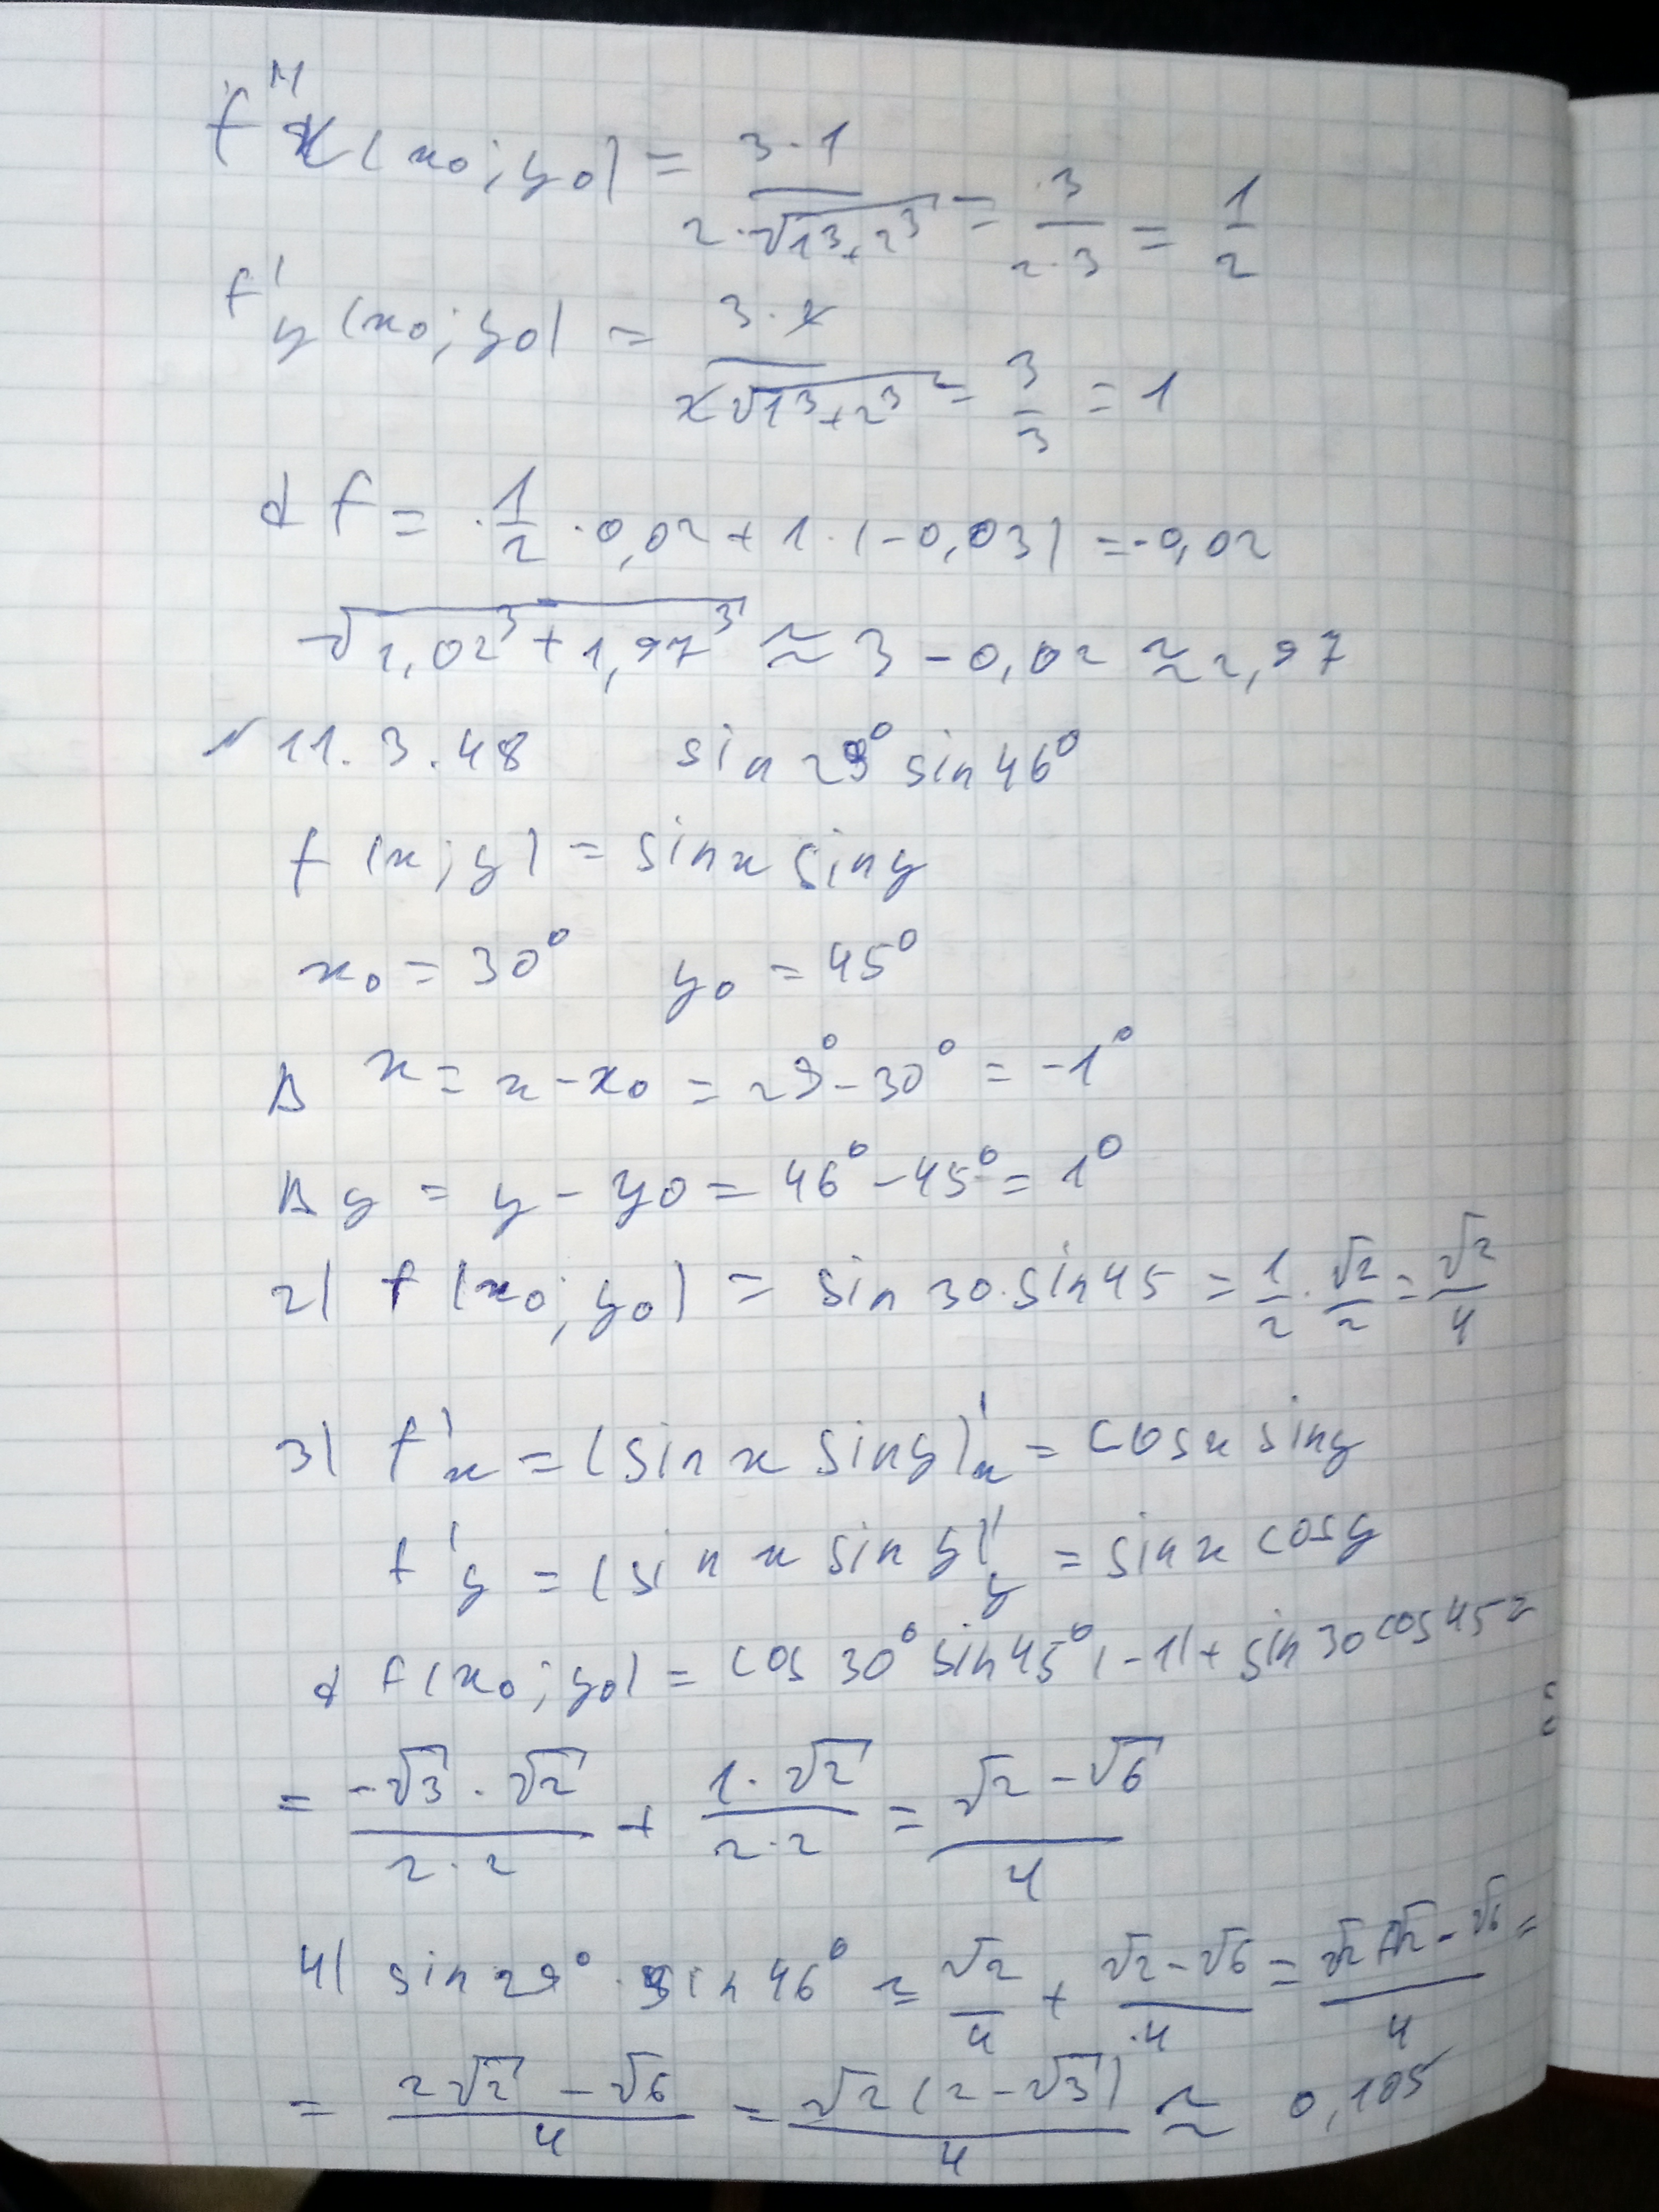 f'x(x₀;y₀) = 3·1/(2·√(1³+2³)) = 3/(2·3) = 1/2
f'y(x₀;y₀) = 3·2/(2√(1³+2³)) = 3/3 = 1
df = 1/2·0,02 + 1·(-0,03) = -0,02
√(1,02³ + 1,97³) ≈ 3 - 0,02 ≈ 2,97
№11.3.48 sin 29° sin 46°
f(x;y) = sin x sin y
x₀ = 30° y₀ = 45°
Δx = x - x₀ = 29° - 30° = -1°
Δy = y - y₀ = 46° - 45° = 1°
2) f(x₀;y₀) = sin 30·sin 45 = 1/2·√2/2 = √2/4
3) f'x = (sin x sin y)'x = cos x sin y
f'y = (sin x sin y)'y = sin x cos y
df(x₀;y₀) = cos 30° sin 45°(-1) + sin 30 cos 45 =
= -√3·√2/(2·2) + 1·√2/(2·2) = (√2 - √6)/4
4) sin 29°·sin 46° = √2/4 + (√2 - √6)/4 = (√2+√2 - √6)/4 =
= (2√2 - √6)/4 = √2(2 - √3)/4 ≈ 0,105